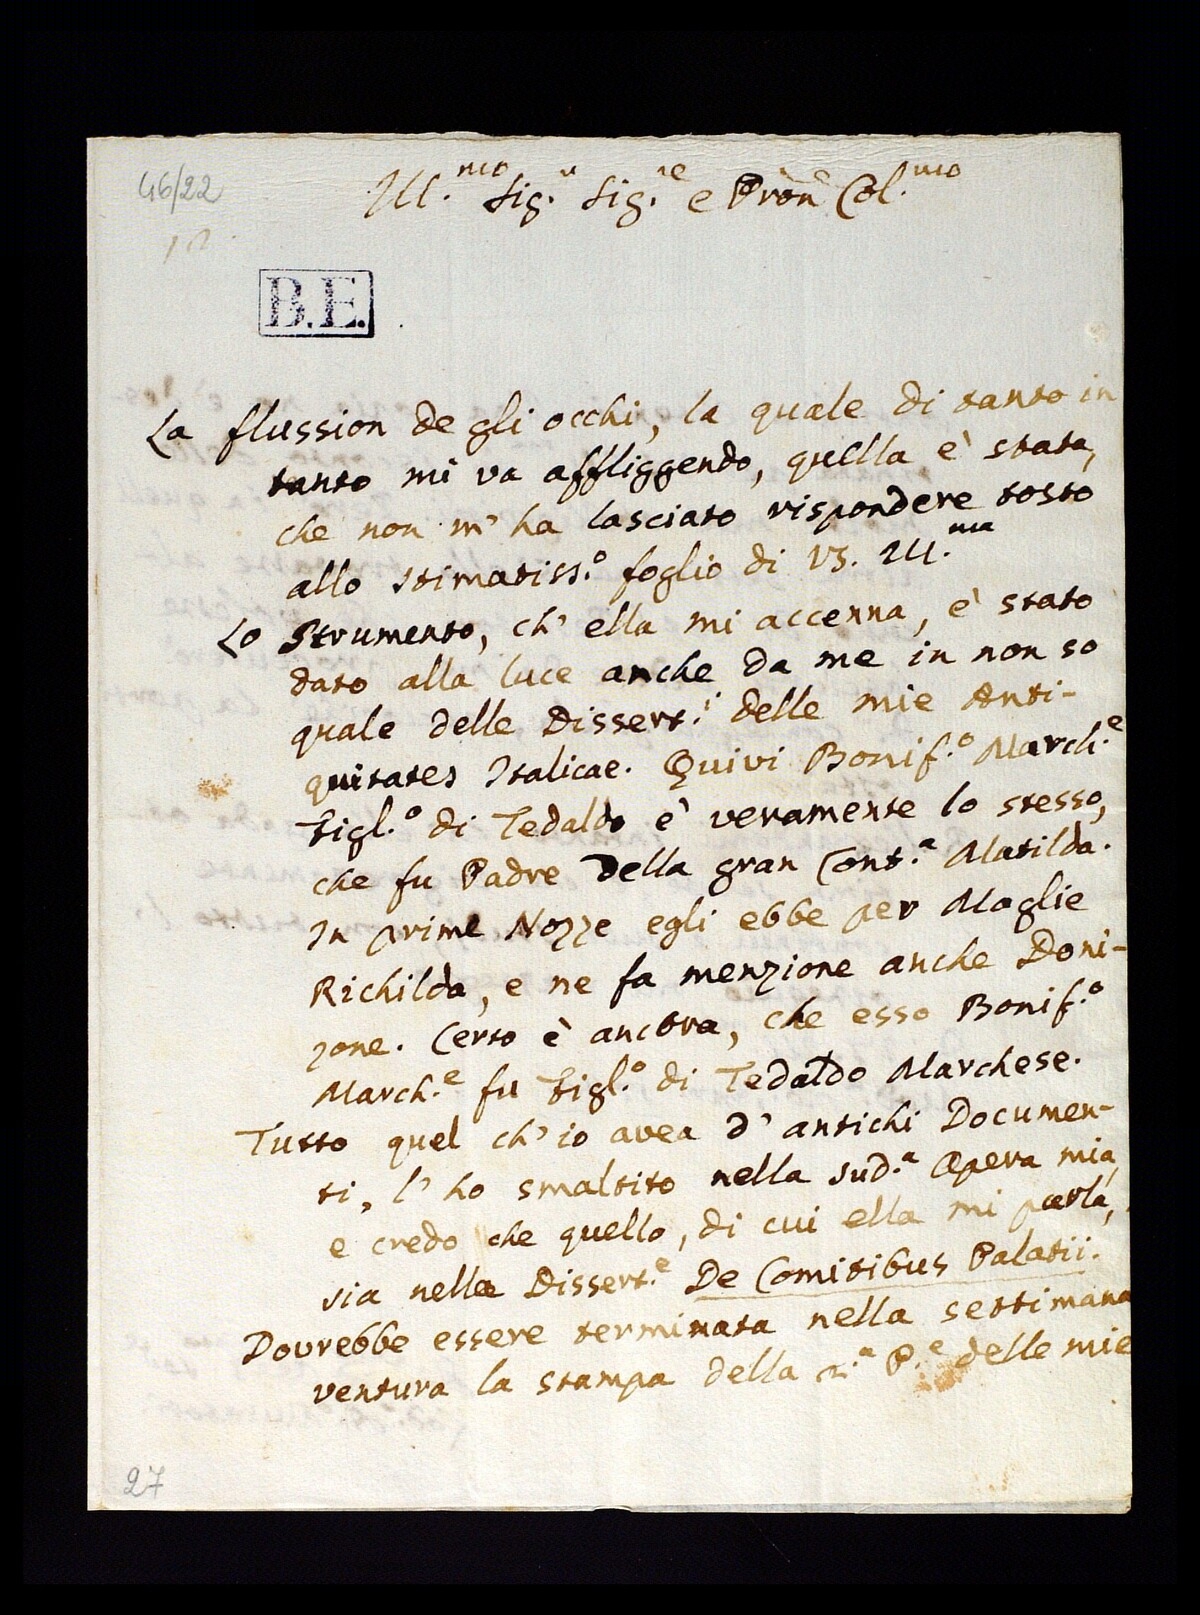 46/22
Ill.mo Sig.r Sig.re e Pron̄e Col.mo
B.E.
La flussion de gli occhi, la quale di tanto in
tanto mi va affliggendo, quella è stata,
che non m' ha lasciato rispondere tosto
allo stimatiss.o foglio di VS. Ill.ma
Lo Strumento, ch' ella mi accenna, è stato
dato alla luce anche da me in non so
quale delle Dissert.i delle mie Anti-
quitates Italicae. Quivi Bonif.o March.e
Figl.o di Tedaldo è veramente lo stesso,
che fu Padre della gran Cont.a Matilda.
In prime Nozze egli ebbe per Moglie
Richilda, e ne fa menzione anche Doni-
zone. Certo è ancora, che esso Bonif.o
March.e fu Figl.o di Tedaldo Marchese.
Tutto quel ch' io avea d' antichi Documen-
ti, l' ho smaltito nella sud.a Opera mia,
e credo che quello, di cui ella mi parla,
sia nella Dissert.e De Comitibus Palatii.
Dovrebbe essere terminata nella settimana
ventura la stampa della 2.a P.e delle mie
27